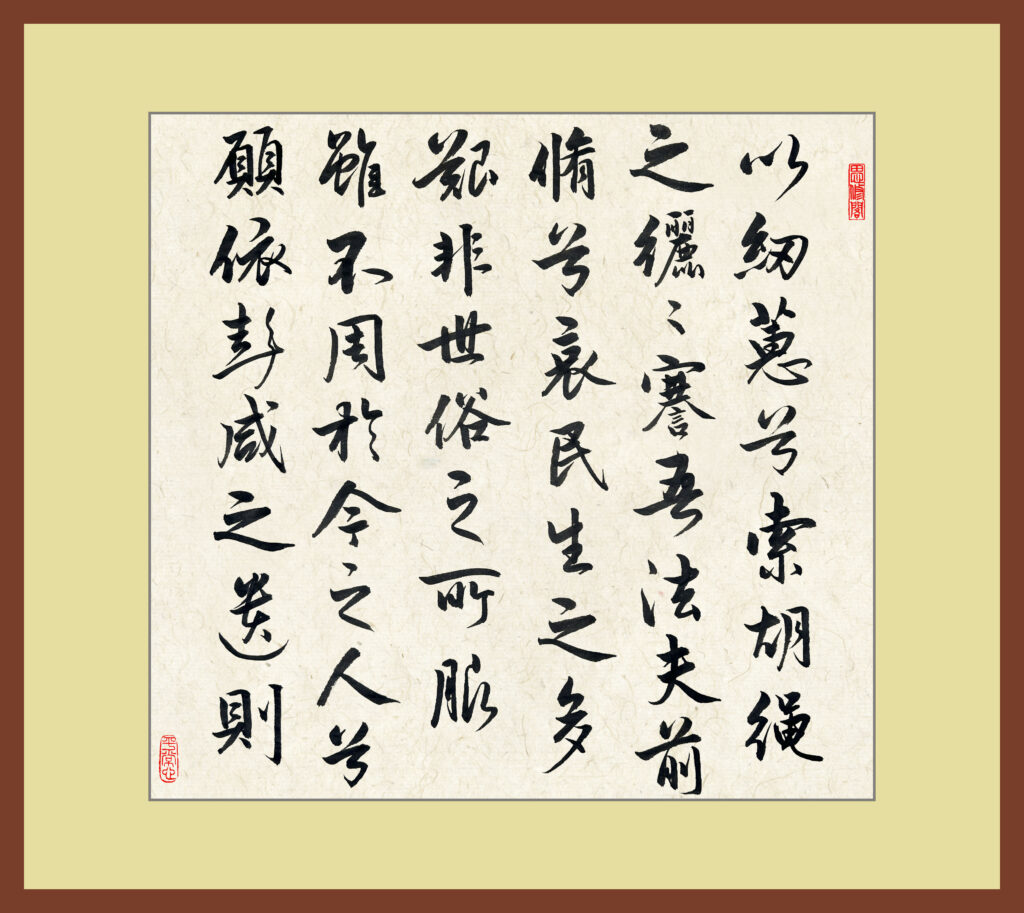 思修閣
以紉蕙兮索胡繩
之纚〻謇吾法夫前
脩兮哀民生之多
艱非世俗之所服
雖不周於今之人兮
願依彭咸之遺則
平常心